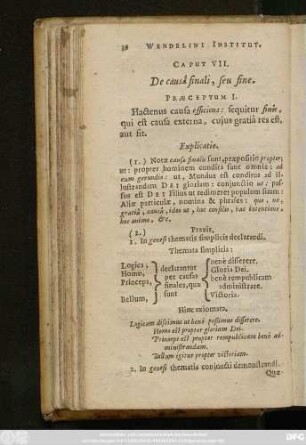 38 WENDELINI INSTITUT.
CAPUT VII.
De causâ finali, seu fine.
PRÆCEPTUM I.
Hactenus causa efficiens: sequitur finis,
qui est causa externa, cujus gratiâ res est,
aut fit.
Explicatio.
(1.) Notæ causæ finalis sunt, præpositio propter;
ut: propter hominem condita sunt omnia: ad
cum gerundiis: ut, Mundus est conditus ad il-
lustrandam DEI gloriam: conjunctio ut: pas-
sus est DEI Filius ut redimeret populum suum:
Aliæ particulæ, nomina & phrases: quo, ne,
gratiâ, causâ, ideo ut, hoc consilio, hac intentione,
hoc animo, &c.
(2.) Praxis,
1. In genesi thematis simplicis declarandi.
Themata simplicia:
Logica,
Homo,
Princeps,
Bellum,
declarantur
per causas
finales, quæ
sunt
benè disserere.
Gloria Dei.
benè rempublicam
administrare.
Victoria.
Hinc axiomata.
Logicam discimus ut benè possimus disserere.
Homo est propter gloriam Dei.
Princeps est propter rempublicam benè ad-
ministrandam.
Bellum geritur propter victoriam.
2. In genesi thematis conjuncti demonstrandi.
Quæ